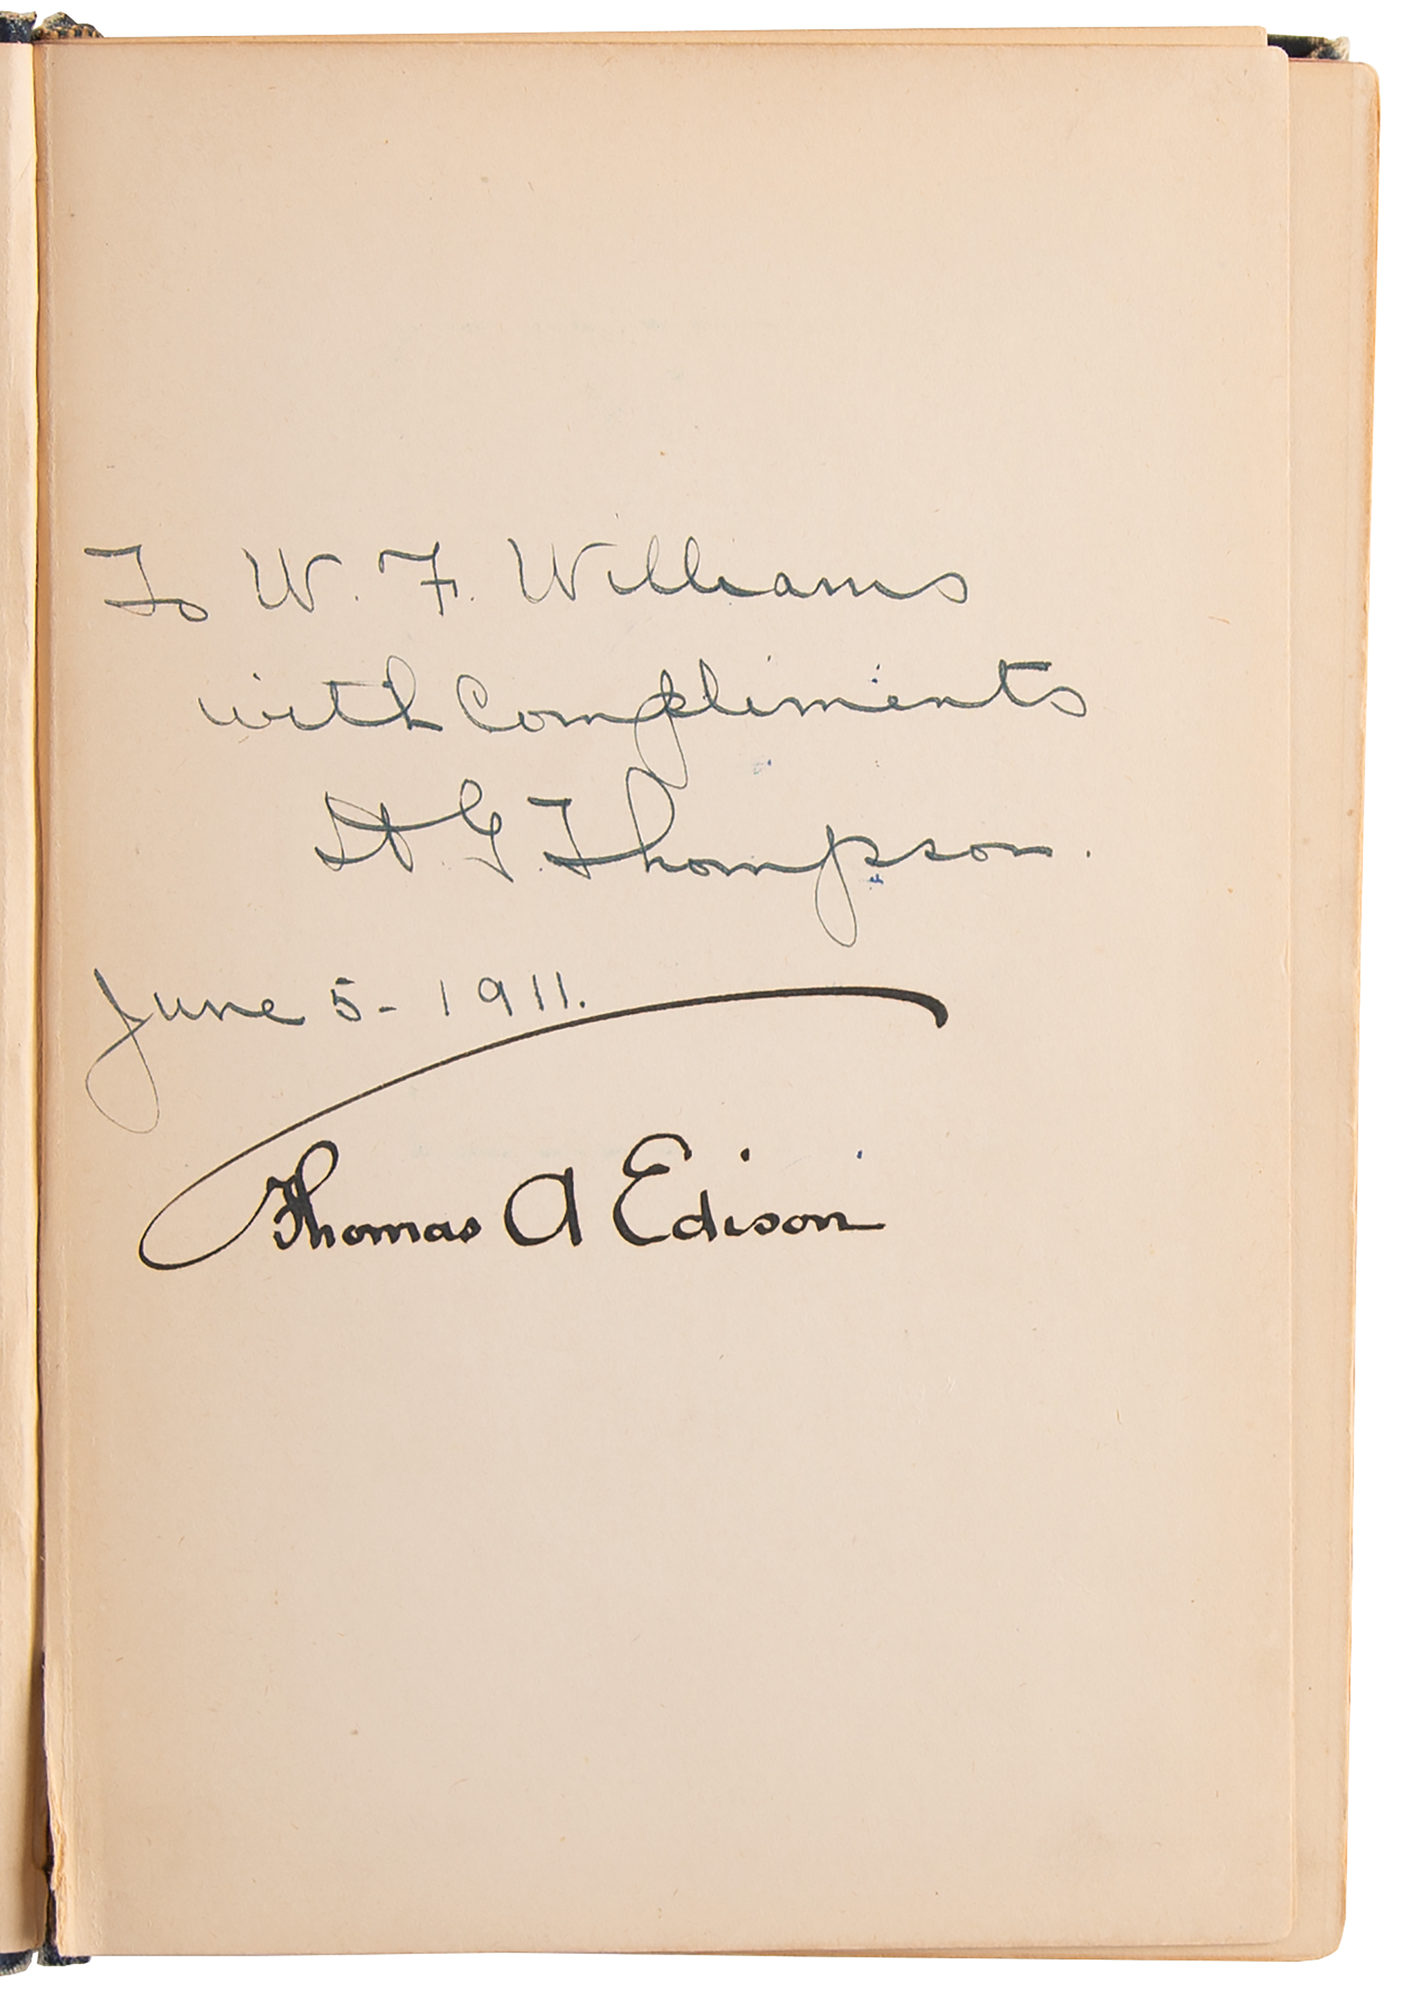 To W. F. Williams
with Compliments
A. G. Thompson.
June 5- 1911.
Thomas A Edison